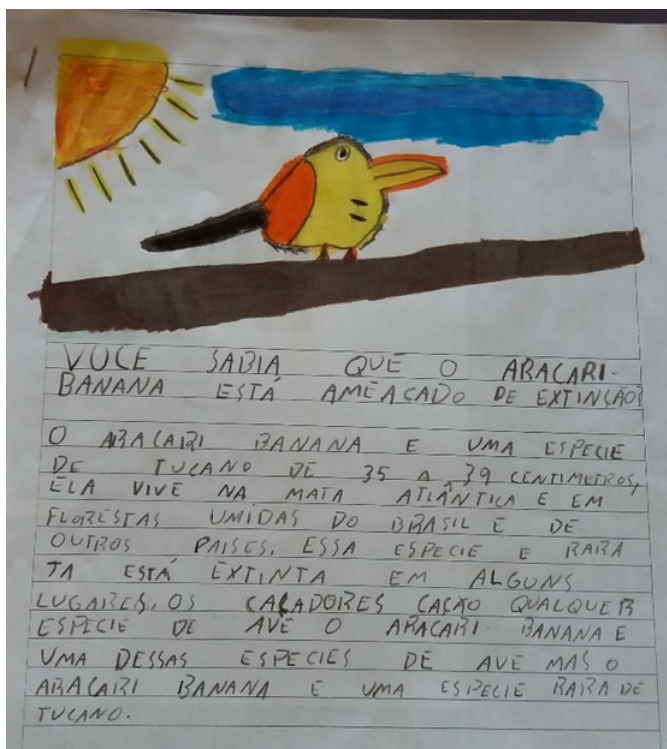 VOCE SABIA QUE O ARACARI-
BANANA ESTÁ AMEACADO DE EXTINÇÃO?
O ARACARI BANANA E UMA ESPECIE
DE TUCANO DE 35 A 39 CENTIMETROS,
ELA VIVE NA MATA ATLÂNTICA E EM
FLORESTAS UMIDAS DO BRASIL E DE
OUTROS PAISES. ESSA ESPECIE E RARA
JA ESTÁ EXTINTA EM ALGUNS
LUGARES. OS CAÇADORES CAÇÃO QUALQUER
ESPECIE DE AVE O ARACARI BANANA E
UMA DESSAS ESPECIES DE AVE MAS O
ARACARI BANANA E UMA ESPECIE RARA DE
TUCANO.